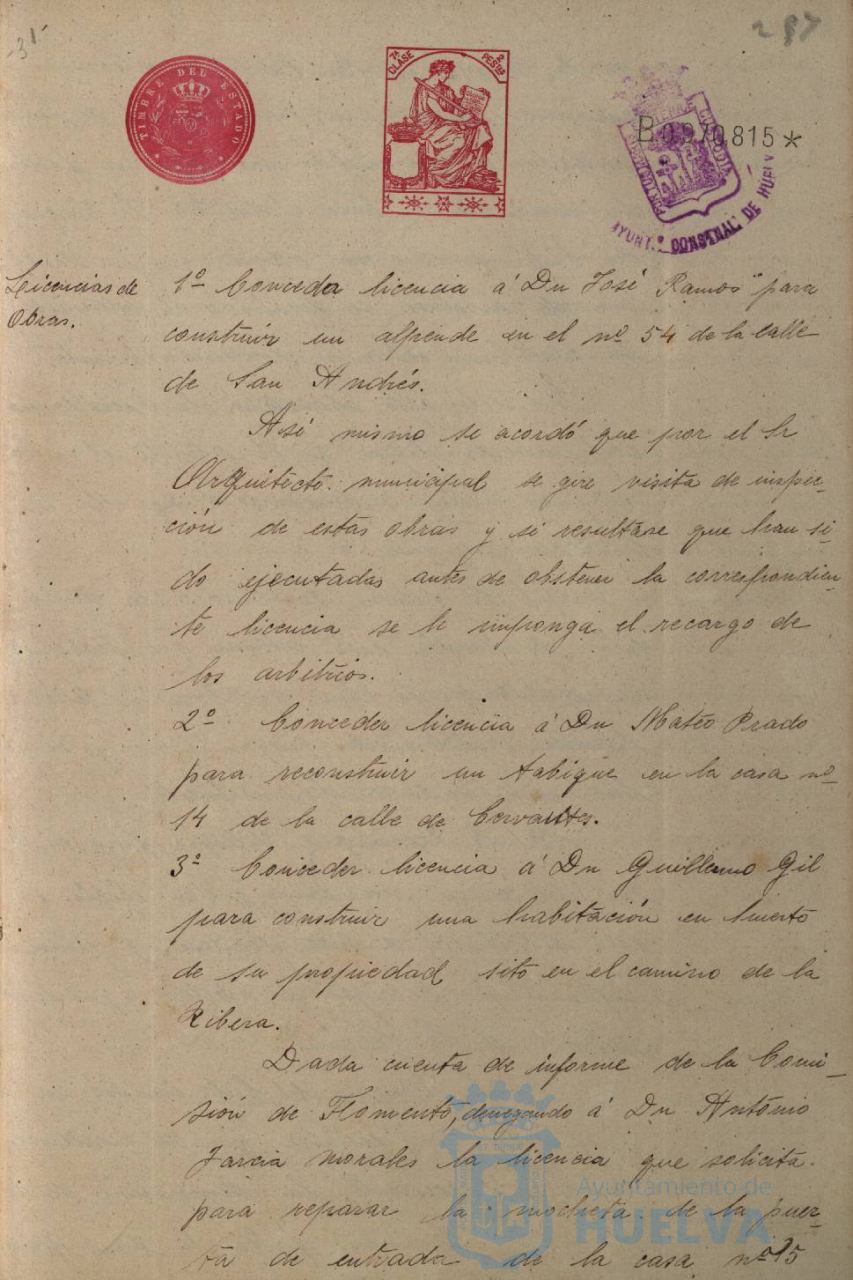 31
287
TIMBRE DEL ESTADO
7ª CLASE 2 PESTAS
B0.970.815*
AYUNTº CONSTNAL DE HUELVA
Licencias de
Obras.
1º Conceder licencia á Dn José Ramos para
construir un alpende en el nº 54 de la calle
de San Andrés.
Asi mismo se acordó que por el Sr
Arquitecto municipal se gire visita de inspec-
ción de estas obras y si resultase que han si-
do ejecutadas antes de obstener la correspondien-
te licencia se le imponga el recargo de
los arbitrios.
2º Conceder licencia á Dn Mateo Prado
para reconstruir un tabique en la casa nº
14 de la calle de Cervantes.
3º Conceder licencia á Dn Guillermo Gil
para construir una habitación en huerto
de su propiedad sito en el camino de la
Ribera.
Dada cuenta de informe de la Comi-
sión de Fomento, denegando á Dn António
Garcia Morales la licencia que solicita
para reparar la mocheta de la puer-
ta de entrada de la casa nº 35
Ayuntamiento de
HUELVA